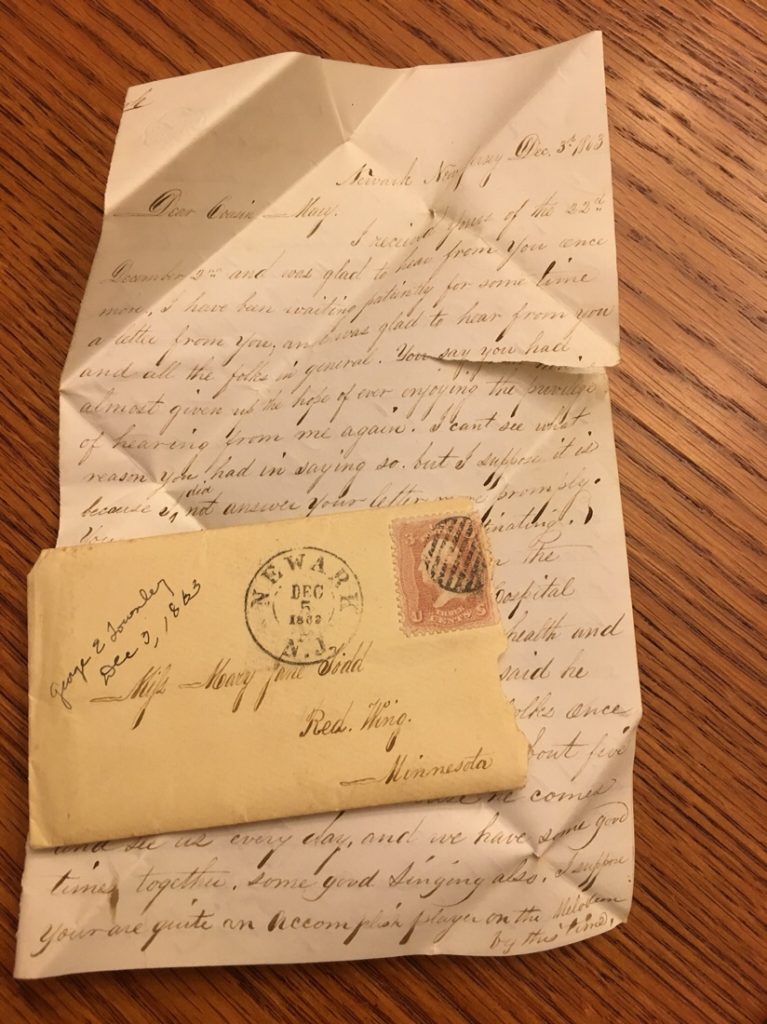 Newark New Jersey Dec. 3rd 1863
Dear Cousin Mary.
I recieved yours of the 22nd
December 2nd and was glad to hear from you once
more. I have been waiting patiently for some time
a letter from You, and was glad to hear from you
and all the folks in general. You say you had
almost given up the hope of ever enjoying the privilege
of hearing from me again. I cant see what
reason you had in saying so. but I suppose it is
because I did not answer Your letter more promply.
You
the
Hospital
health and
said he
folks once
about five
he comes
and see us every day, and we have some good
times together, some good Singing also. I suppose
Your are quite an Accomplish player on the Melodeon
by this time.
George E Townley
Dec 3, 1863
NEWARK
DEC
5
1863
N.J.
U S
THREE
CENTS
Miss Mary Jane Todd
Red. Wing.
Minnesota